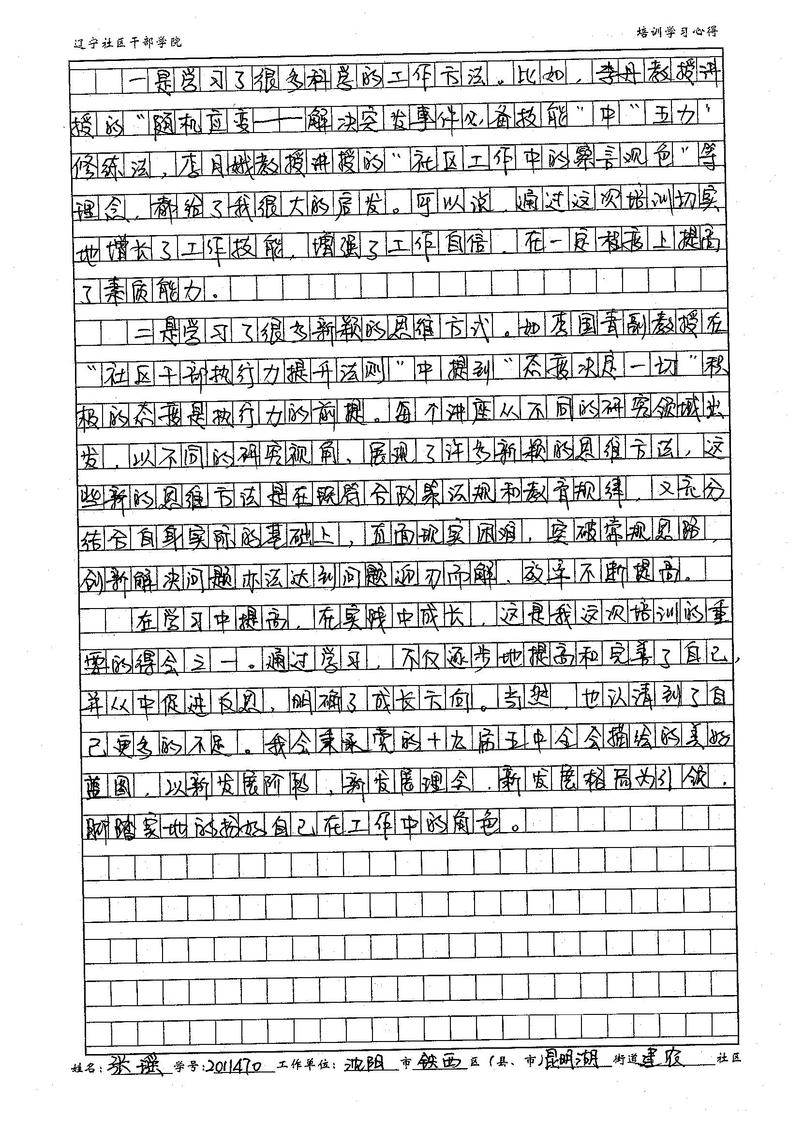 辽宁社区干部学院 培训学习心得
一是学习了很多科学的工作方法。比如，李丹教授讲
授的“随机应变——解决突发事件必备技能”中“五力”
修练法，李月娥教授讲授的“社区工作中的察言观色”等
理念，都给了我很大的启发。可以说，通过这次培训切实
地增长了工作技能，增强了工作自信，在一定程度上提高
了素质能力。
二是学习了很多新颖的思维方式。如李国青副教授在
“社区干部执行力提升法则”中提到“态度决定一切”积
极的态度是执行力的前提。每个讲座从不同的研究领域出
发，以不同的研究视角、展现了许多新颖的思维方法，这
些新的思维方法是在既符合政策法规和教育规律，又充分
结合自身实际的基础上，直面现实困难，突破常规思路，
创新解决问题办法达到问题迎刃而解、效率不断提高。
在学习中提高，在实践中成长，这是我这次培训的重
要的得会之一。通过学习，不仅逐步地提高和完善了自己，
并从中促进反思，明确了成长方向。当然，也认清到了自
己更多的不足。我会秉承党的十九届五中全会描绘的美好
蓝图，以新发展阶段，新发展理念，新发展格局为引领，
脚踏实地的扮好自己在工作中的角色。
姓名：张瑶 学号：2011470 工作单位：沈阳 市 铁西 区（县、市）昆明湖 街道 建农 社区